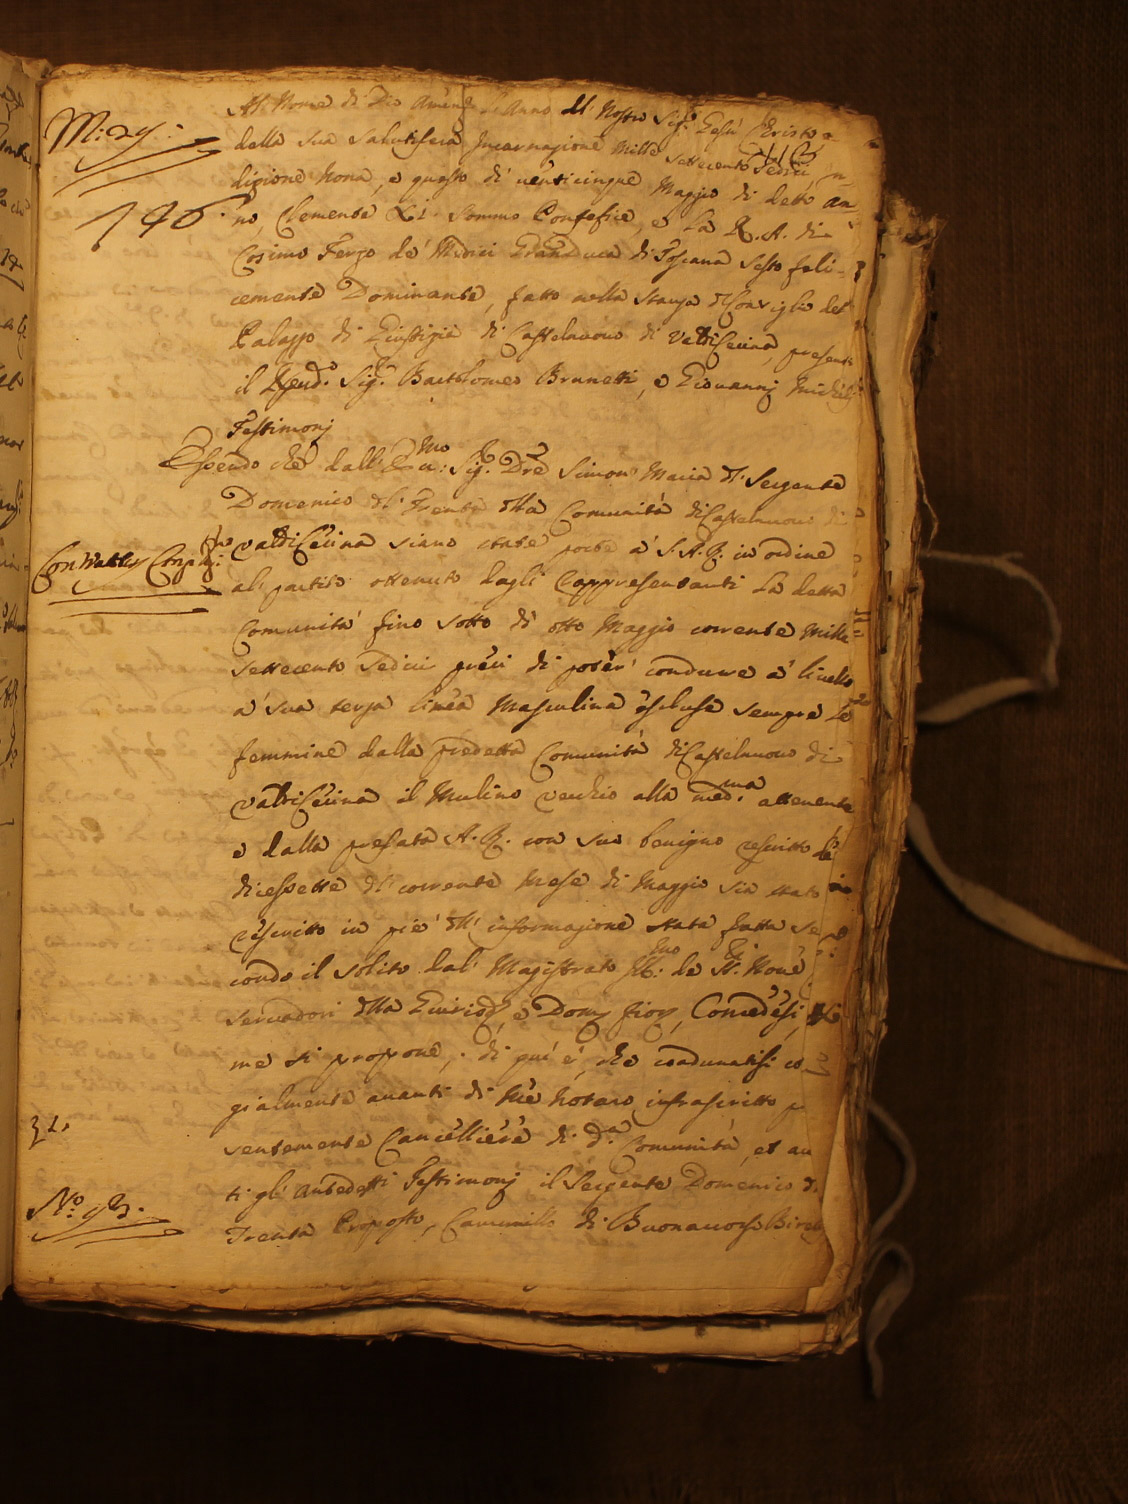 M: 29:
146
Al Nome di Dio Amen L'Anno del Nostro Sig.r Gesù Christo
della sua salutifera Incarnazione Mille settecento Sedici In
dizione Nona, e questo dì venticinque Maggio di detto An
no, Clemente XI. Sommo Pontefice, e La R. A. di
Cosimo Terzo de' Medici Granduca di Toscana Sesto feli
cemente Dominante, fatto nella stanza di Consiglio del
Palazzo di Giustizia di Castelnuovo di Valdicecina, presenti
il Sig.r Bartolomeo Brunetti, e Giovannj Michelj
Testimonj
Essendo che dall' Sig.r Dre Simon Maria del Sergente
Domenico del Trenta della Comunità di Castelnuovo di
Valdicecina siano state porte a' S. A. R. in ordine
al partito ottenuto dagli Rappresentanti La detta
Comunità fino sotto dì otto Maggio corrente Mille
settecento sedici preci di poter' condurre a' livello
a' sua terza linea Masculina escluse sempre Le
femmine dalla predetta Comunità di Castelnuovo di
Valdicecina il Mulino vecchio alla med.ma attenente
e dalla prefata A. R. con suo benigno rescritto
diciessette del corrente Mese di Maggio sia stato
rescritto in piè dell' informazione stata fatta se
condo il solito dal' Magistrato de SS.ri Nove
servadori della Giurisd., e Dom. fior. Concedesi
me si propone, di qui è, che cordunatisi co
gialmente avanti di Me Notaro infrascritto p
sentemente Cancelliere di d.a Comunità, et av
ti gli Antedetti Testimonj il Sergente Domenico
Trenta Proposto, Cammillo di Buonaccorso
31.
N.o 93.